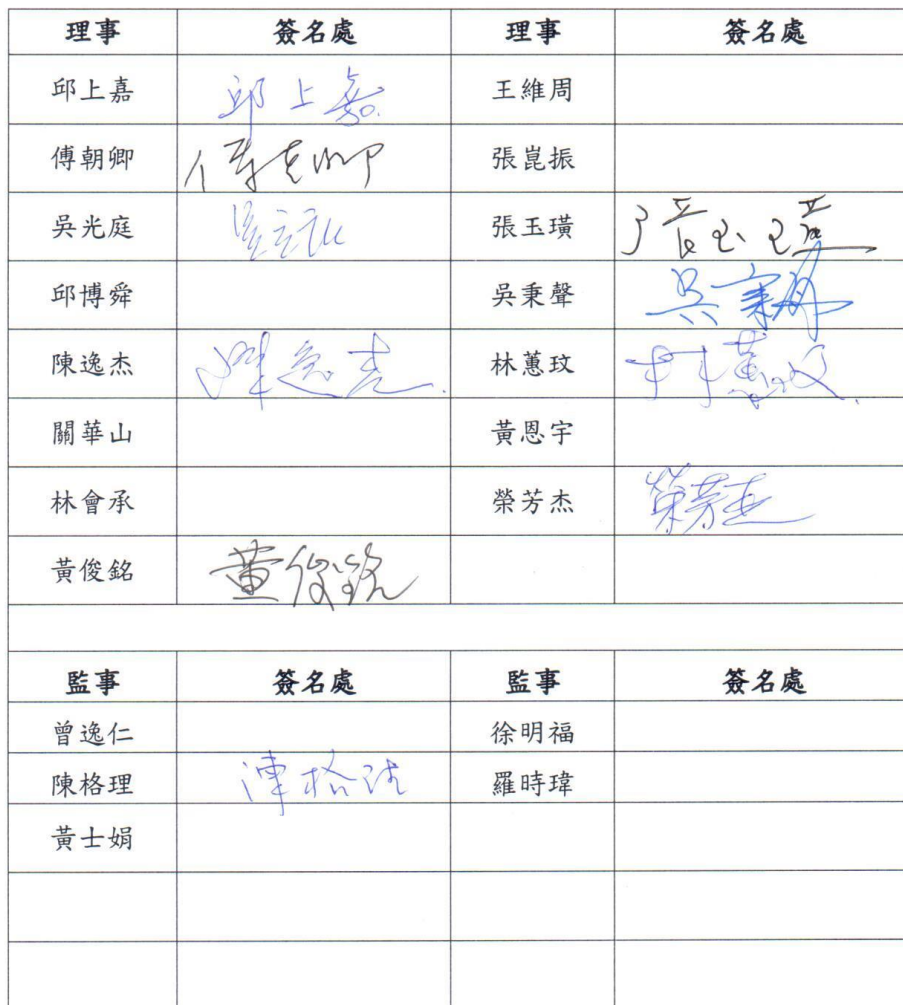 理事 簽名處 理事 簽名處
邱上嘉 邱上嘉 王維周
傅朝卿 傅朝卿 張崑振
吳光庭 張玉璜 張玉璜
邱博舜 吳秉聲 吳秉聲
陳逸杰 陳逸杰 林蕙玟 林蕙玟
關華山 黃恩宇
林會承 榮芳杰 榮芳杰
黃俊銘 黃俊銘
監事 簽名處 監事 簽名處
曾逸仁 徐明福
陳格理 陳格理 羅時瑋
黃士娟